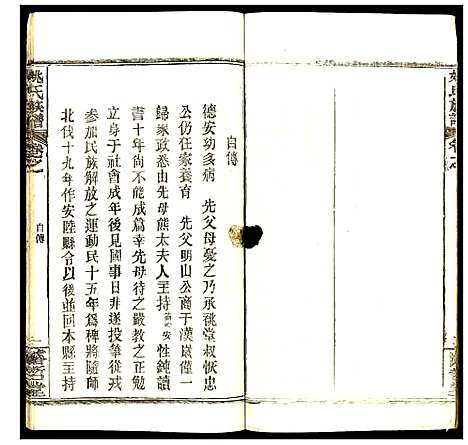 姚氏族譜
卷之一
自傳
自傳
德安幼多病 先父母憂之乃承祧堂叔恢忠
公仍在家養育 先父明山公商于漢歲僅一
歸家政悉由先母熊太夫人主持 安性鈍讀
書十年尚不能成篇幸先母待之嚴教之正勉
立身于社會成年後見國事日非遂投筆從戎
參加民族解放之運動民十五年爲裨將隨師
北伐十九年作安陸縣令以後並回本縣主持